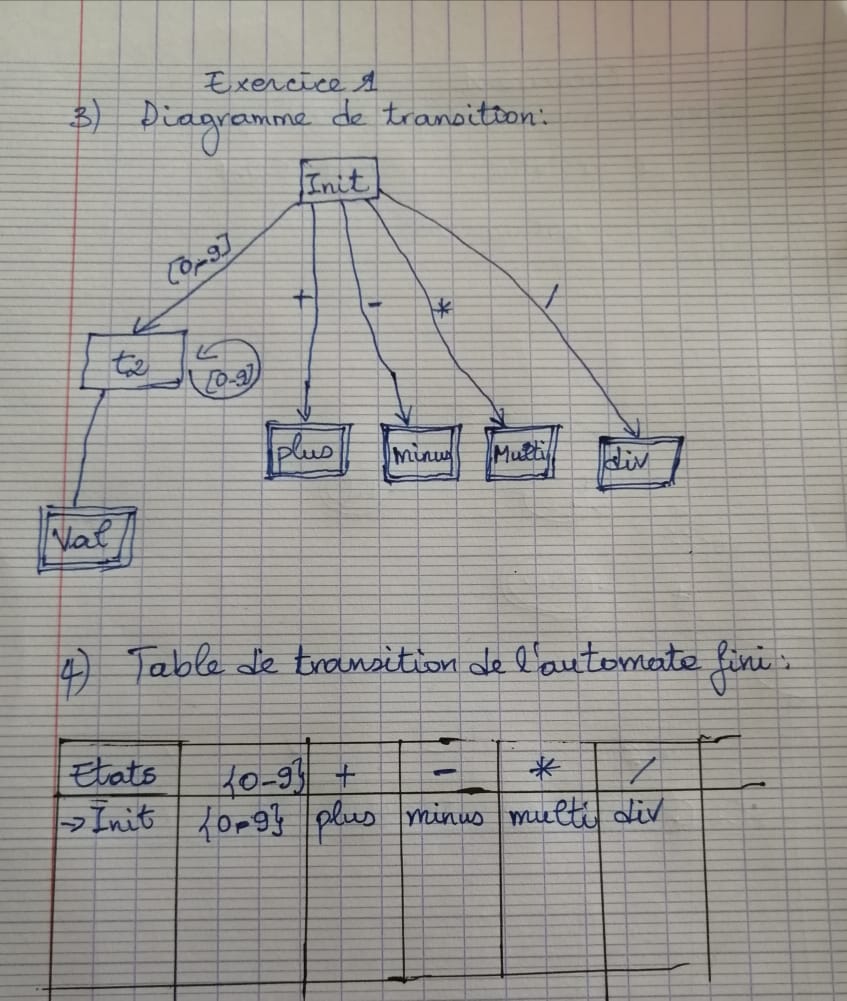 Exercice 1
3) Diagramme de transition:
Init
[0-9]
+
-
*
/
t2
[0-9]
plus
minus
Multi
div
Val
4) Table de transition de l'automate fini:
Etats {0-9} + - * /
→Init {0-9} plus minus multi div